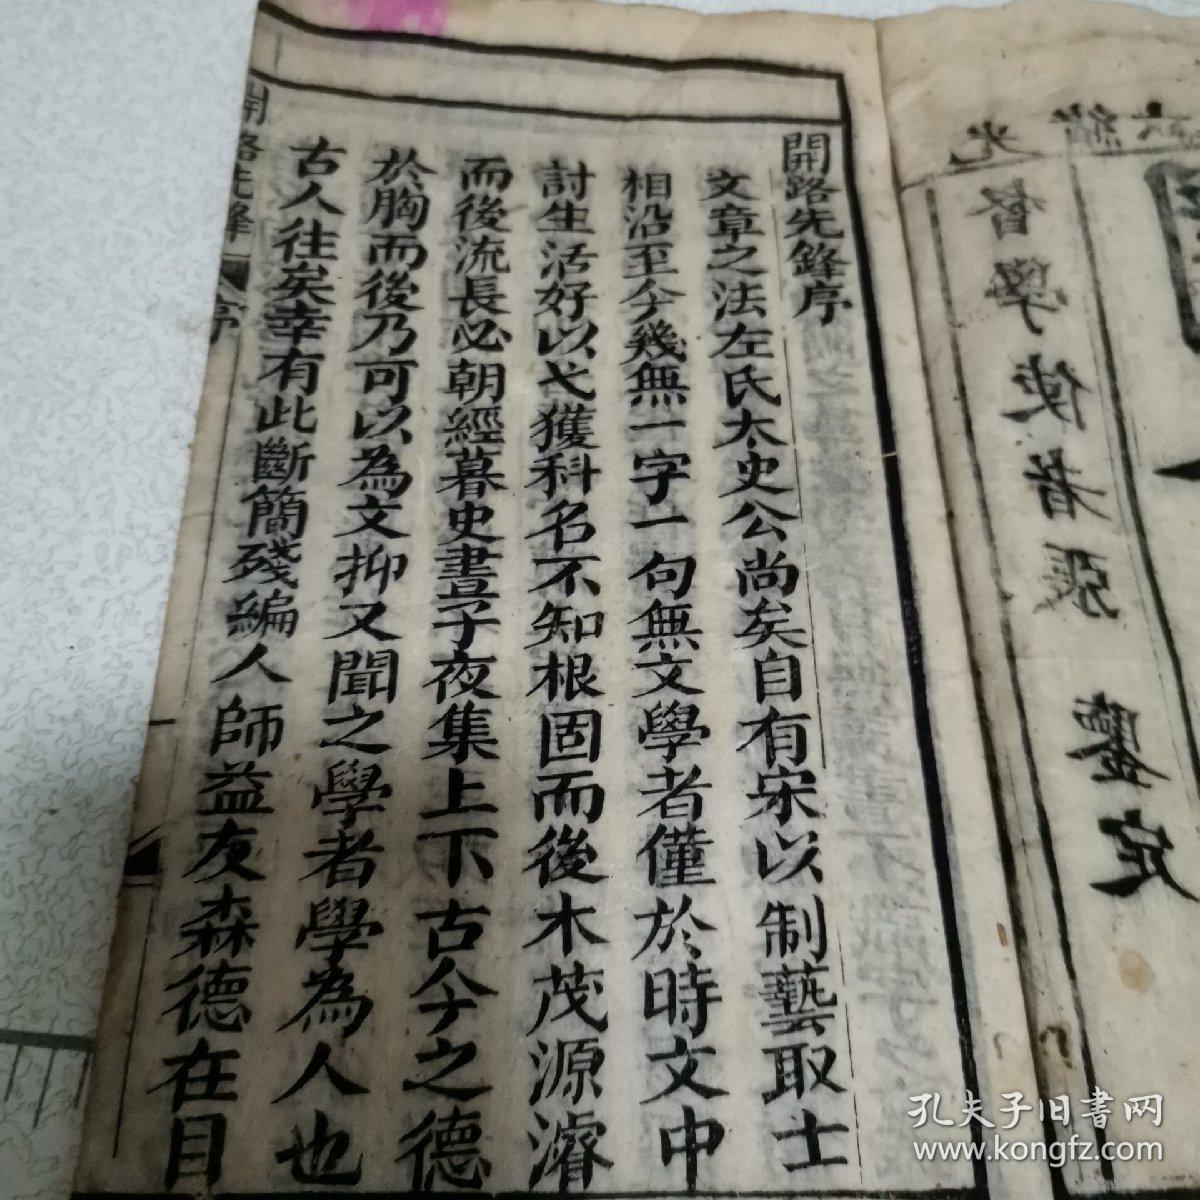 開路先鋒序
文章之法左氏太史公尚矣自有宋以制藝取士
相沿至今幾無一字一句無文學者僅於時文中
討生活好以弋獲科名不知根固而後木茂源濬
而後流長必朝經暮史晝子夜集上下古今之德
於胸而後乃可以為文抑又聞之學者學為人也
古人往矣幸有此斷簡殘編人師益友森德在目
開路先鋒
序
督學使者張 鑒定
光緒六
孔夫子旧書网
www.kongfz.com